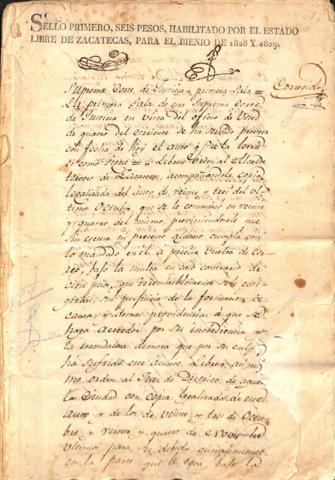 SELLO PRIMERO, SEIS PESOS, HABILITADO POR EL ESTADO
LIBRE DE ZACATECAS, PARA EL BIENIO DE 1828 Y 1829.
Corregido
Suprema Corte de Justicia = primera Sala =
La primera Sala de esta Suprema Corte
de Justicia en vista del oficio de
de quatro del corriente se ha
con fecha de hoy el auto q.
como sigue = Librese orden al Alcalde
de Zacatecas, acompañandole copia
legalizada del auto de veinte y tres del ul
timo Octubre, que se le comunico en veinte
y quatro del mismo, previniendole que
sin escusa ni pretexto alguno cumpla con
lo mandado en el a precisa vuelta de Co
rreo, bajo la multa en caso contrario de
cien pesos, que irremisiblemente se le exi
giran, sin perjuicio de la formacion de
causa, y demas providencias a que se
haga acreedor por su inobediencia
la escandalosa demora que por su culpa
ha sufrido este asunto. Librese
misma orden al Juez de Distrito de aque
lla Ciudad con copia legalizada de este
auto y de los de veinte y tres de Octu
bre, y veinte y quatro de Noviembre
ultimos para su debido cumplimiento
en la parte que le toca bajo la